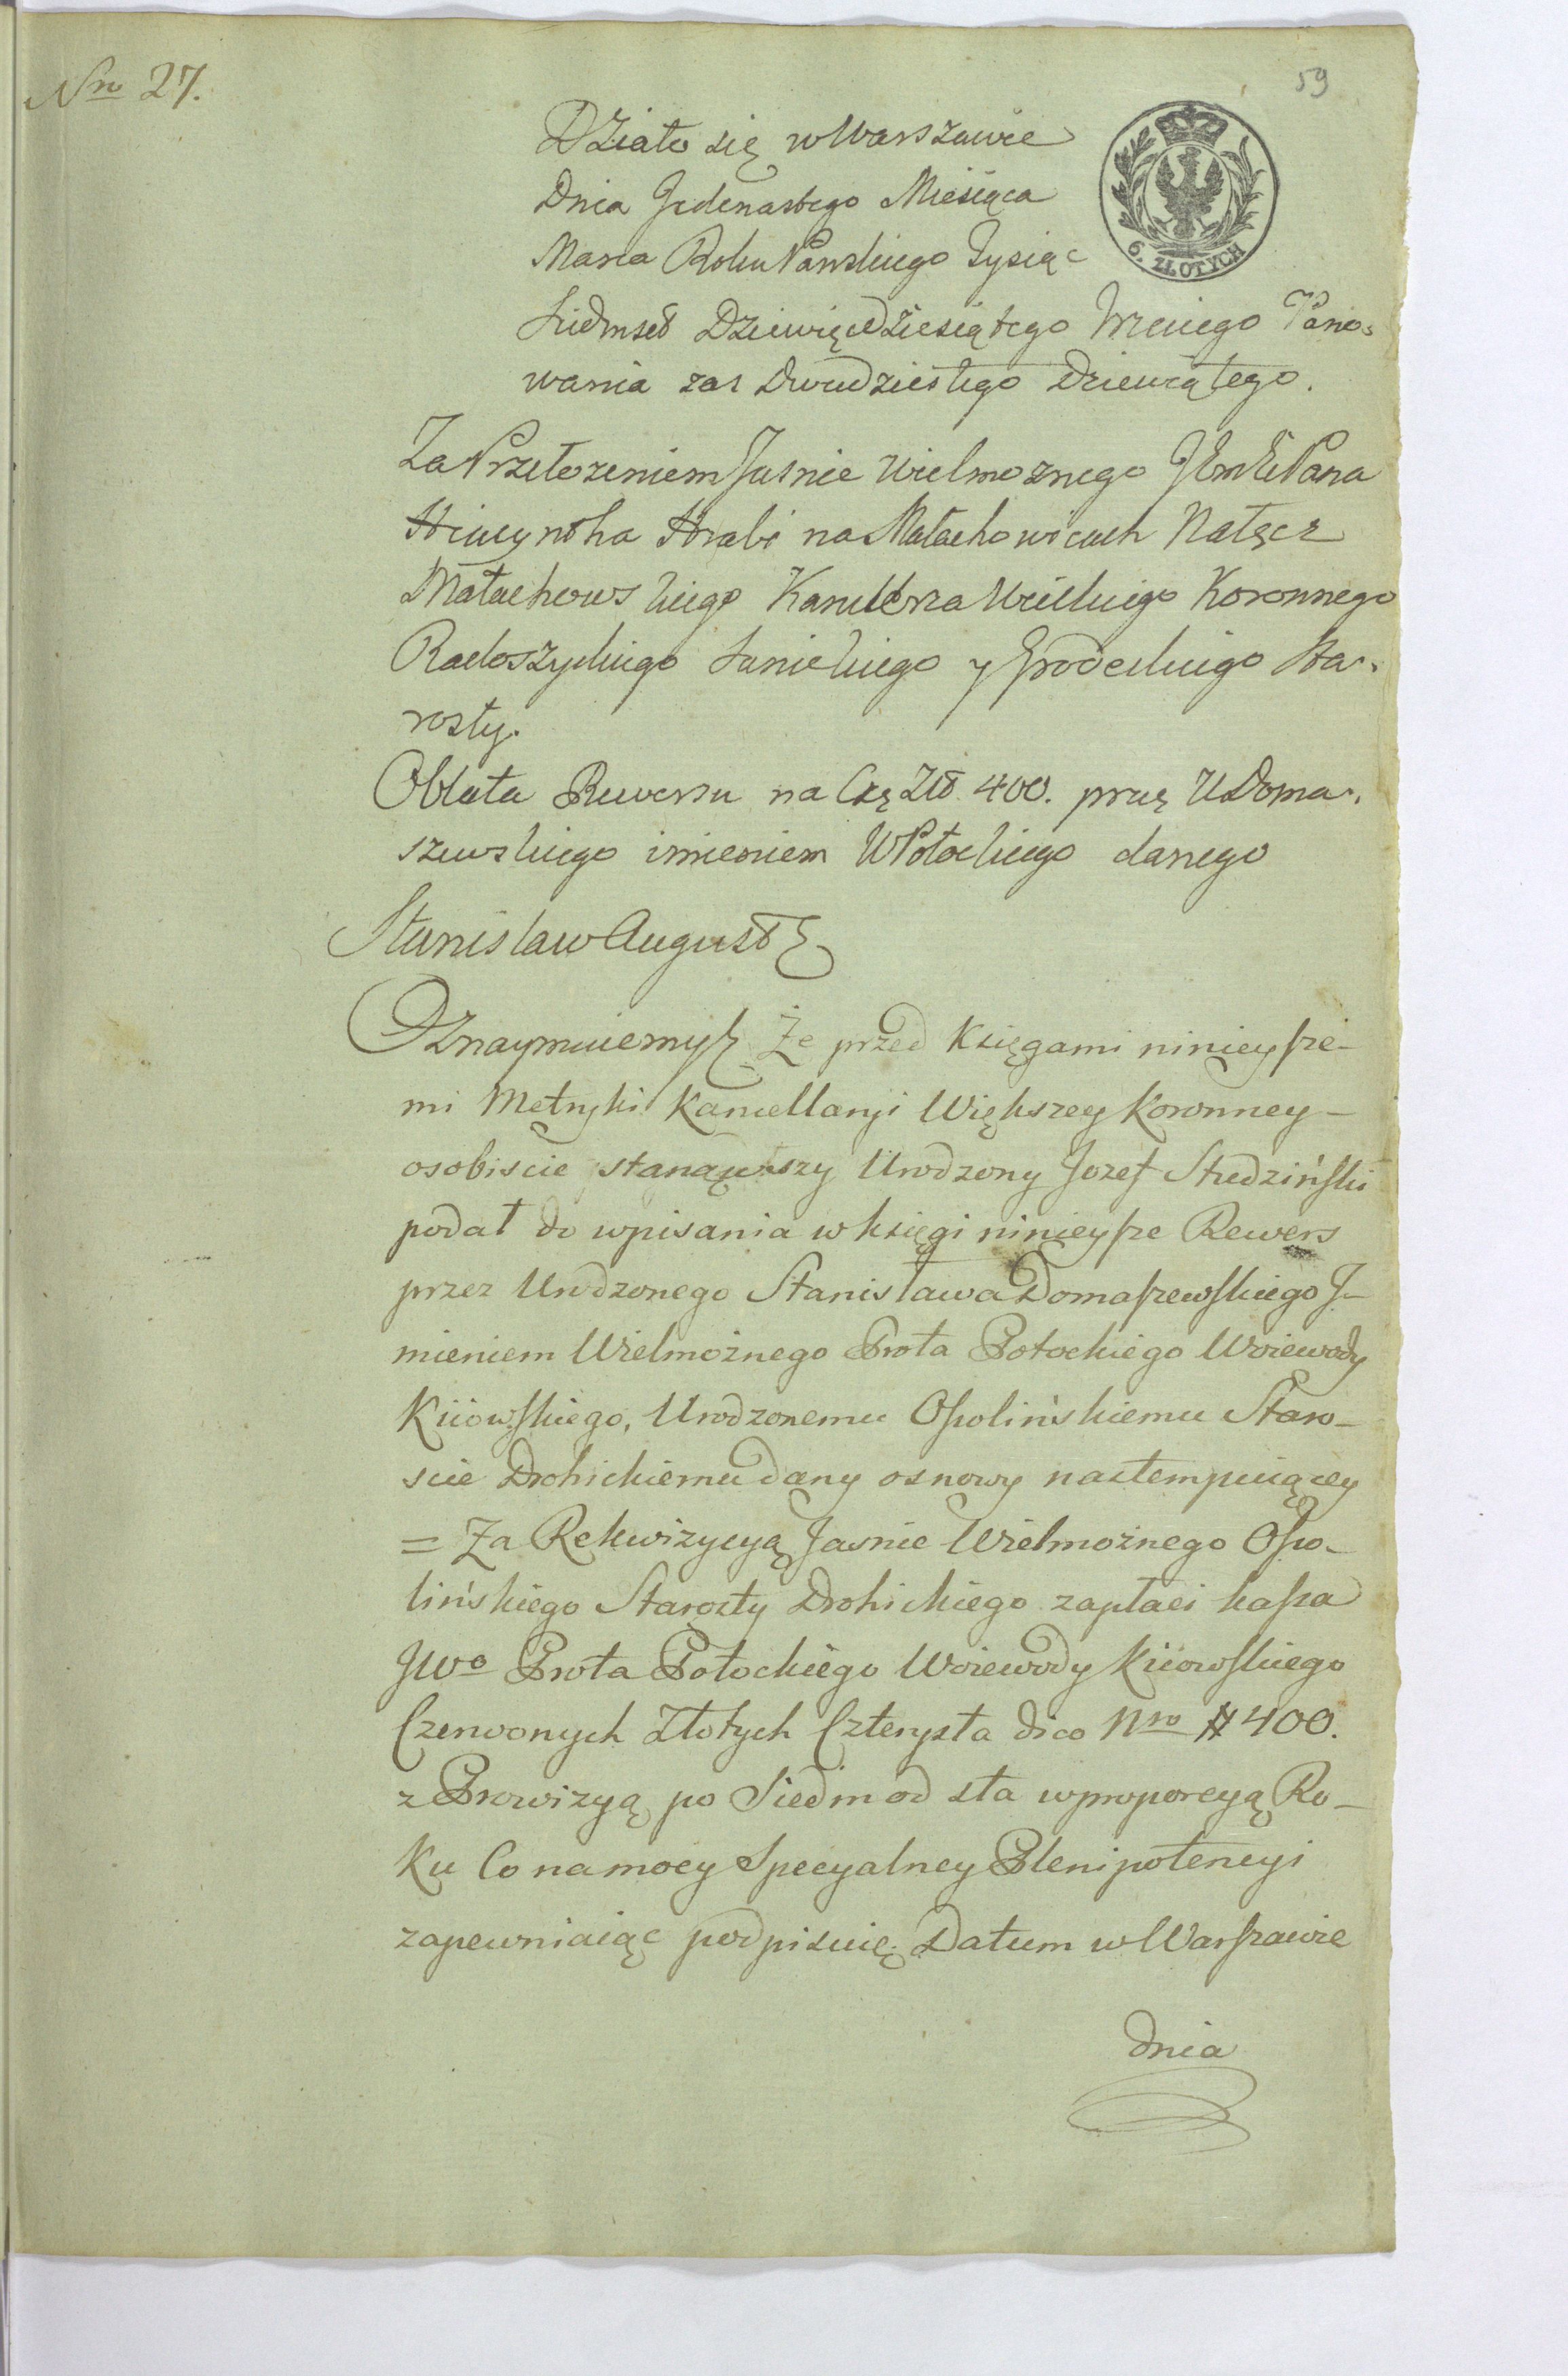 Nro 27.
59
Działo się w Warszawie
Dnia Jedenastego Miesiąca
Marca Roku Pańskiego Tysiąc
6. ZŁOTYCH
Siedmset Dziewięćdziesiątego Trzeciego Pano-
wania zas Dwudziestego Dziewiątego.
Za Przełożeniem Jasnie Wielmoznego Pana
Hiacyntha Hrabi na Małachowicach Nałęcz
Małachowskiego Kanclerza Wielkiego Koronnego
Radoszyckiego Sanickiego y Grodeckiego Sta-
rosty.
Oblata Rewersu na Czę Złł. 400. przez U Doma-
szewskiego imieniem W Potockiego danego
Stanisław August &
Oznaymuiemy & Że przed Księgami ninieyſze-
mi Metryki Kancellaryi Większey Koronney -
osobiscie stanąwszy Urodzony Jozef Studzińſki
podał do wpisania w księgi ninieyſze Rewers
przez Urodzonego Stanisława Domaſzewſkiego J-
mieniem Wielmożnego Prota Potockiego Woiewody
Kiiowſkiego, Urodzonemu Oſsolińskiemu Staro-
scie Drohickiemu dany osnowy nastempuiącey
= Za Rekwizycyą Jasnie Wielmożnego Oſso-
lińskiego Starosty Drohickiego zapłaci kaſsa
JWo Prota Potockiego Woiewody Kiiowſkiego
Czerwonych Złotych Czterysta dico Nro # 400.
z Prowizyą po Siedm od sta w proporcyą Ro-
ku Co na mocy Specyalney Plenipotencyi
zapewniaiąc podpisuię. Datum w Warſzawie
dnia